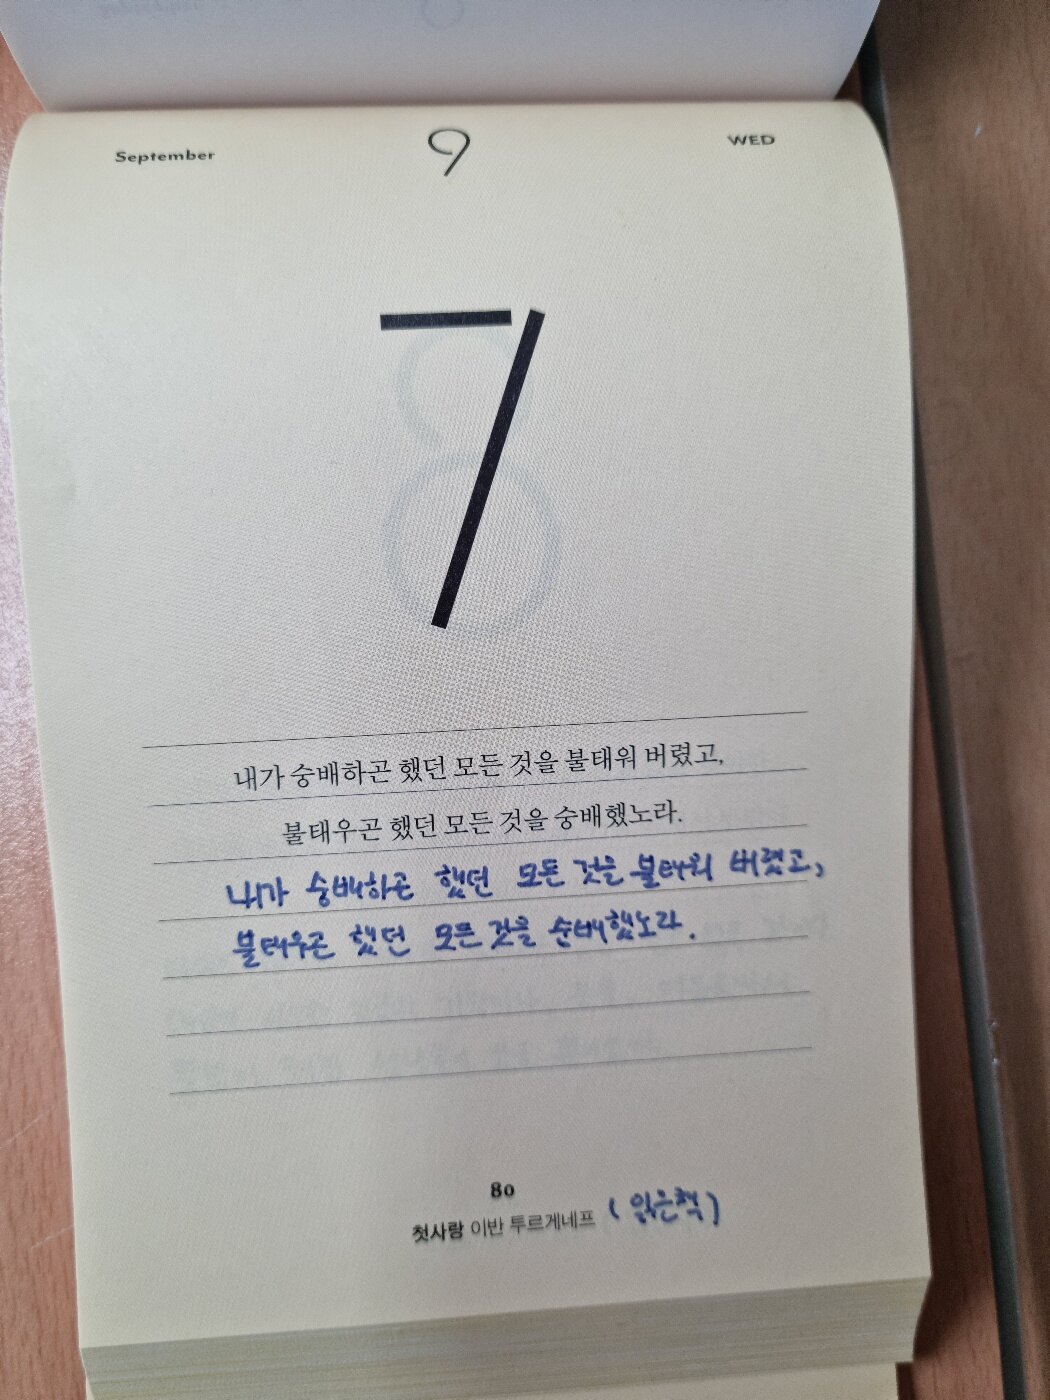 September 9 WED
7
내가 숭배하곤 했던 모든 것을 불태워 버렸고,
불태우곤 했던 모든 것을 숭배했노라.
내가 숭배하곤 했던 모든 것을 불태워 버렸고,
불태우곤 했던 모든 것을 숭배했노라.
80
첫사랑 이반 투르게네프 (읽은책)